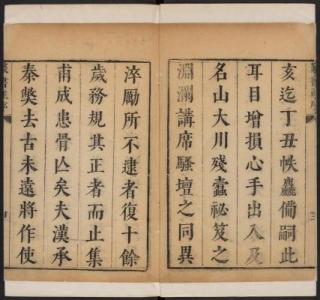 亥迄丁丑帙麤備嗣此
耳目增損心手出入及
名山大川殘蠧祕笈之
淵瀾講席騷壇之同異
淬勵所不逮者復十餘
歲務規其正者而止集
甫成患骨亾矣夫漢承
秦樊去古未遠將作使